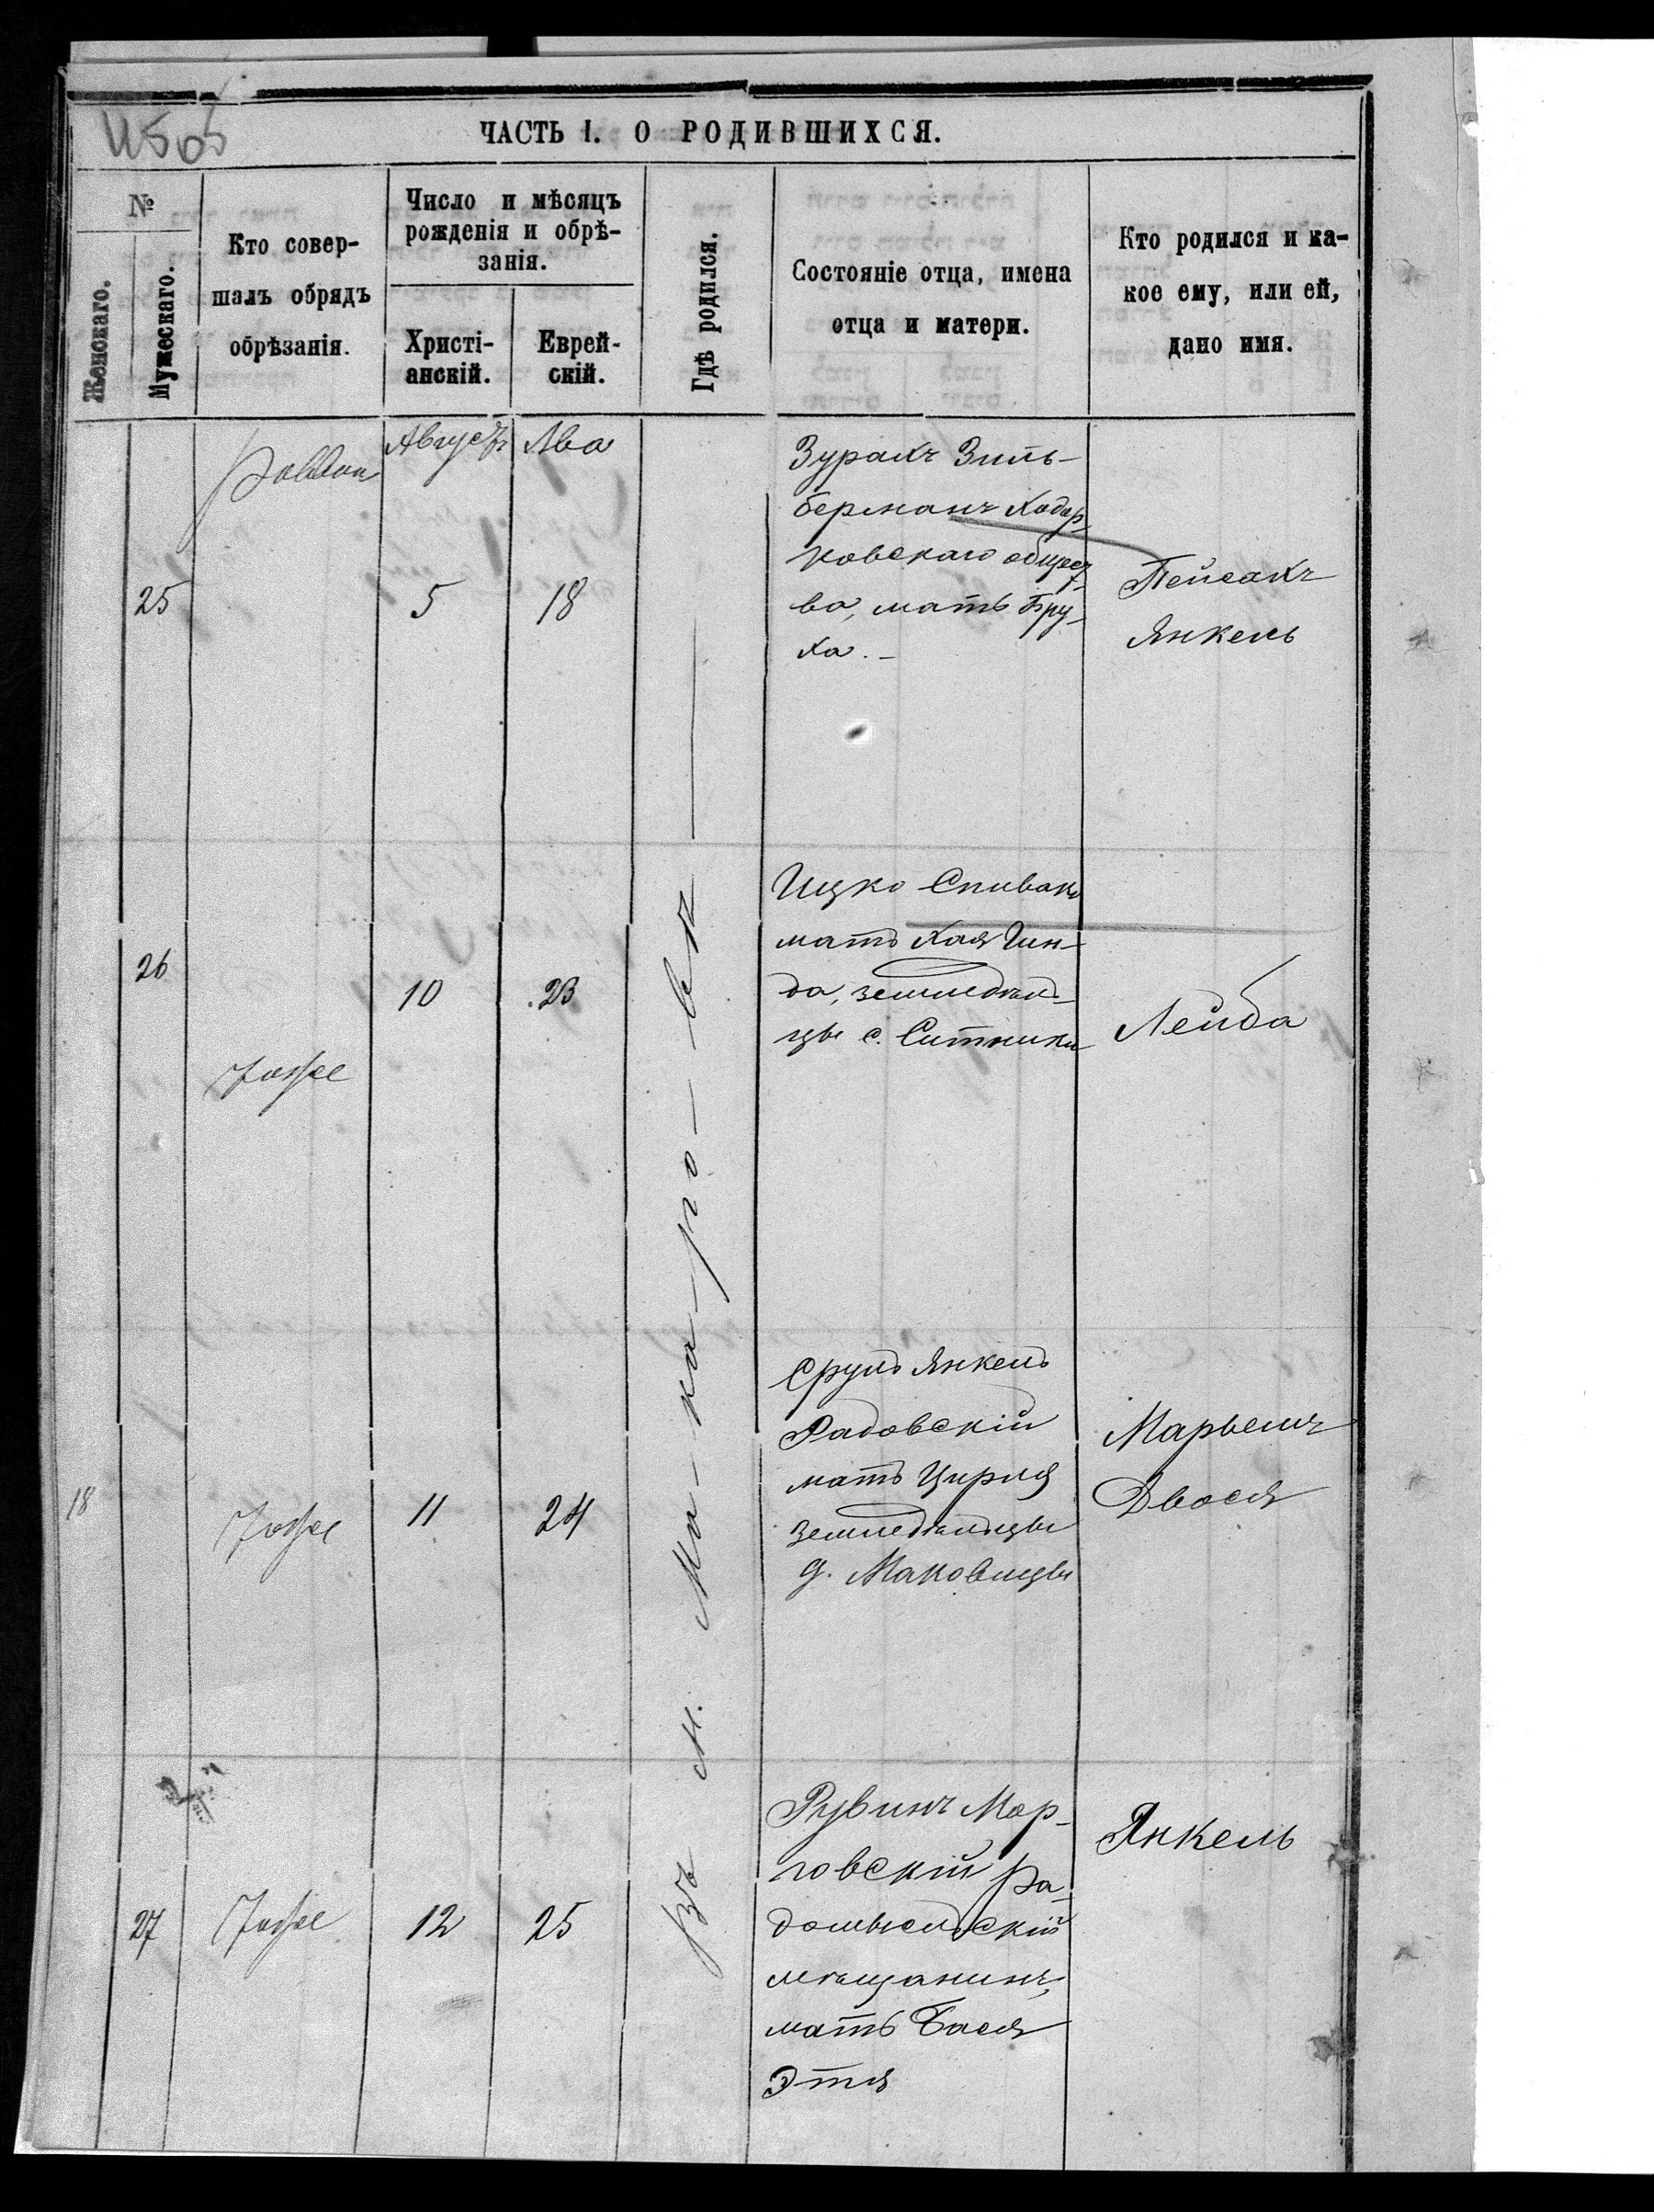 ЧАСТЬ I. О РОДИВШИХСЯ.
№
Женскаго.
Мужескаго.
Кто совер-
шалъ обрядъ
обрѣзанія.
Число и мѣсяцъ
рожденія и обрѣ-
занія.
Христі-
анскій.
Еврей-
скій.
Гдѣ родился.
Состояніе отца, имена
отца и матери.
Кто родился и ка-
кое ему, или ей,
дано имя.
Въ м. Ма-ка-ро-вѣ
Августъ
Ава
25
5
18
Зурахъ Зиль-
берманъ Ходор-
ковскаго общест-
ва, мать Бру-
ха.-
Пейсахъ
Янкель
26
10
23
Ицко Спивакъ
мать Хая Гин-
да, земледѣль-
цы с. Ситники
Лейба
18
11
24
Сруль Янкель
Радовскій
мать Цирля
земледѣльцы
д. Маковищы
Марьемъ
Двося
27
12
25
Рувинъ Мар-
говскій Ра-
домысльскій
мѣщанинъ,
мать Бася
Этя
Янкель